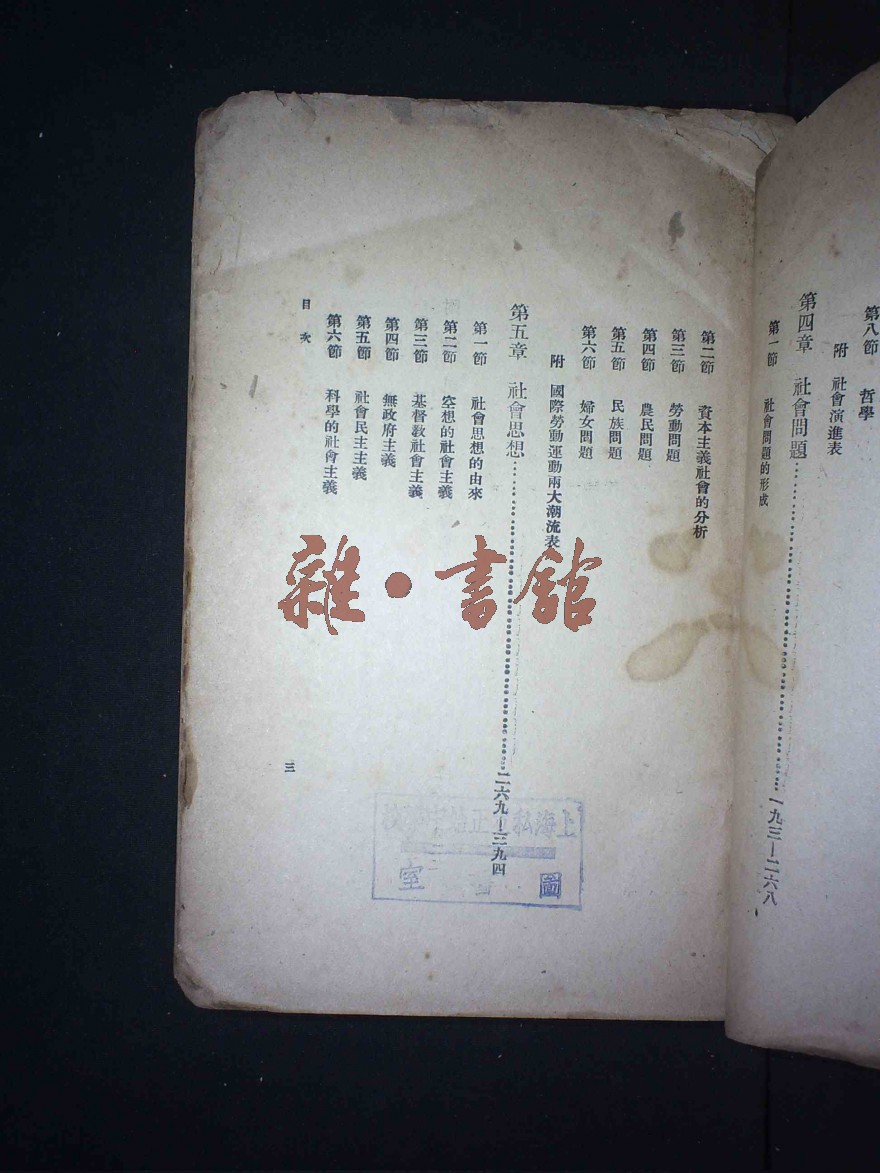 第八節 哲學
附 社會演進表
第四章 社會問題……一九三—二六八
第一節 社會問題的形成
第二節 資本主義社會的分析
第三節 勞動問題
第四節 農民問題
第五節 民族問題
第六節 婦女問題
附 國際勞動運動兩大潮流表
第五章 社會思想……二六九—三九四
第一節 社會思想的由來
第二節 空想的社會主義
第三節 基督教社會主義
第四節 無政府主義
第五節 社會民主主義
第六節 科學的社會主義
目次
三
雜·書館
上海私立正始中學校
圖 室